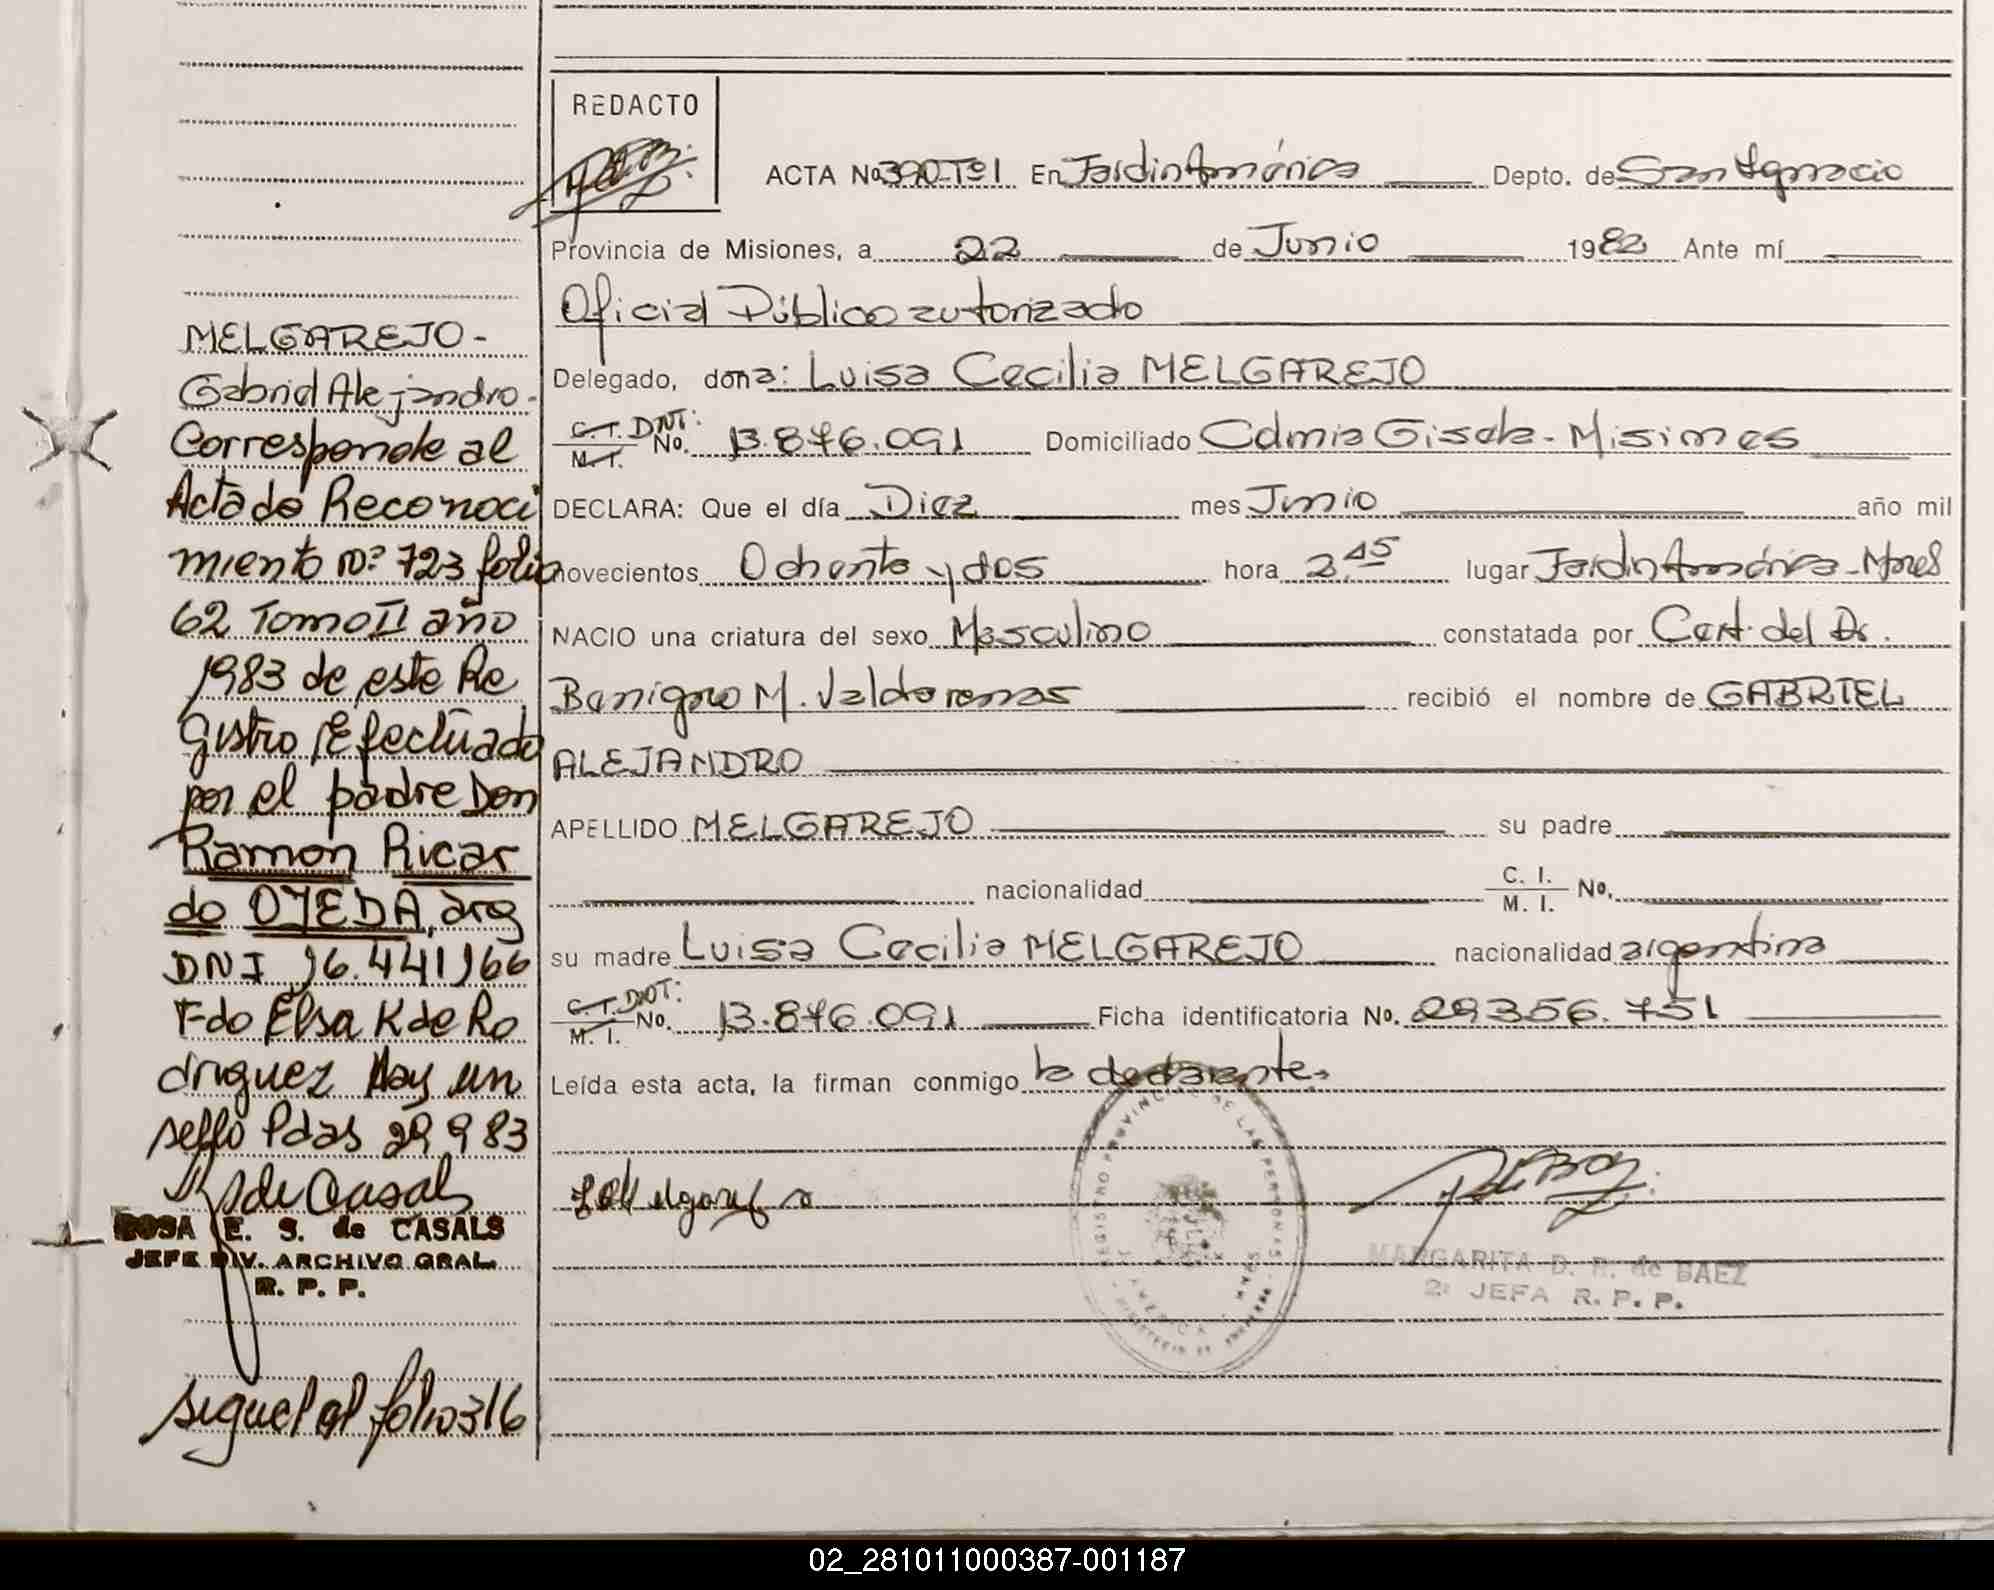 MELGAREJO-
Gabriel Alejandro-
Corresponde al
Acta de Reconoci
miento Nº 723 folio
62 Tomo II año
1983 de este Re
gistro Efectuado
por el padre Don
Ramon Ricar
do OJEDA, arg
DNI 16.441166
Fdo Elsa K de Ro
driguez Hay un
sello Pdas 29 9 83
S de Casals
ROSA E. S. de CASALS
JEFE DIV. ARCHIVO GRAL.
R. P. P.
sigue al folio 316
REDACTO
ACTA No 390-Tº1 En Jardin América Depto. de San Ignacio
Provincia de Misiones, a 22 de Junio 1982 Ante mí
Oficial Público autorizado
Delegado, dona: Luisa Cecilia MELGAREJO
C.I. DNI: M.I. No. 13.876.091 Domiciliado Colonia Gisela-Misiones
DECLARA: Que el día Diez mes Junio año mil
novecientos Ochenta y dos hora 2,45 lugar Jardin América-Mnes
NACIO una criatura del sexo Masculino constatada por Cert. del Dr.
Benigno M. Valdarenas recibió el nombre de GABRIEL
ALEJANDRO
APELLIDO MELGAREJO su padre
nacionalidad C. I. M. I. No.
su madre Luisa Cecilia MELGAREJO nacionalidad argentina
C.I. DNI: M. I. No. 13.876.091 Ficha identificatoria No. 29.356.751
Leída esta acta, la firman conmigo la declarante.
REGISTRO PROVINCIAL DE LAS PERSONAS
MARGARITA D. R. de BAEZ
2º JEFA R. P. P.
02_281011000387-001187